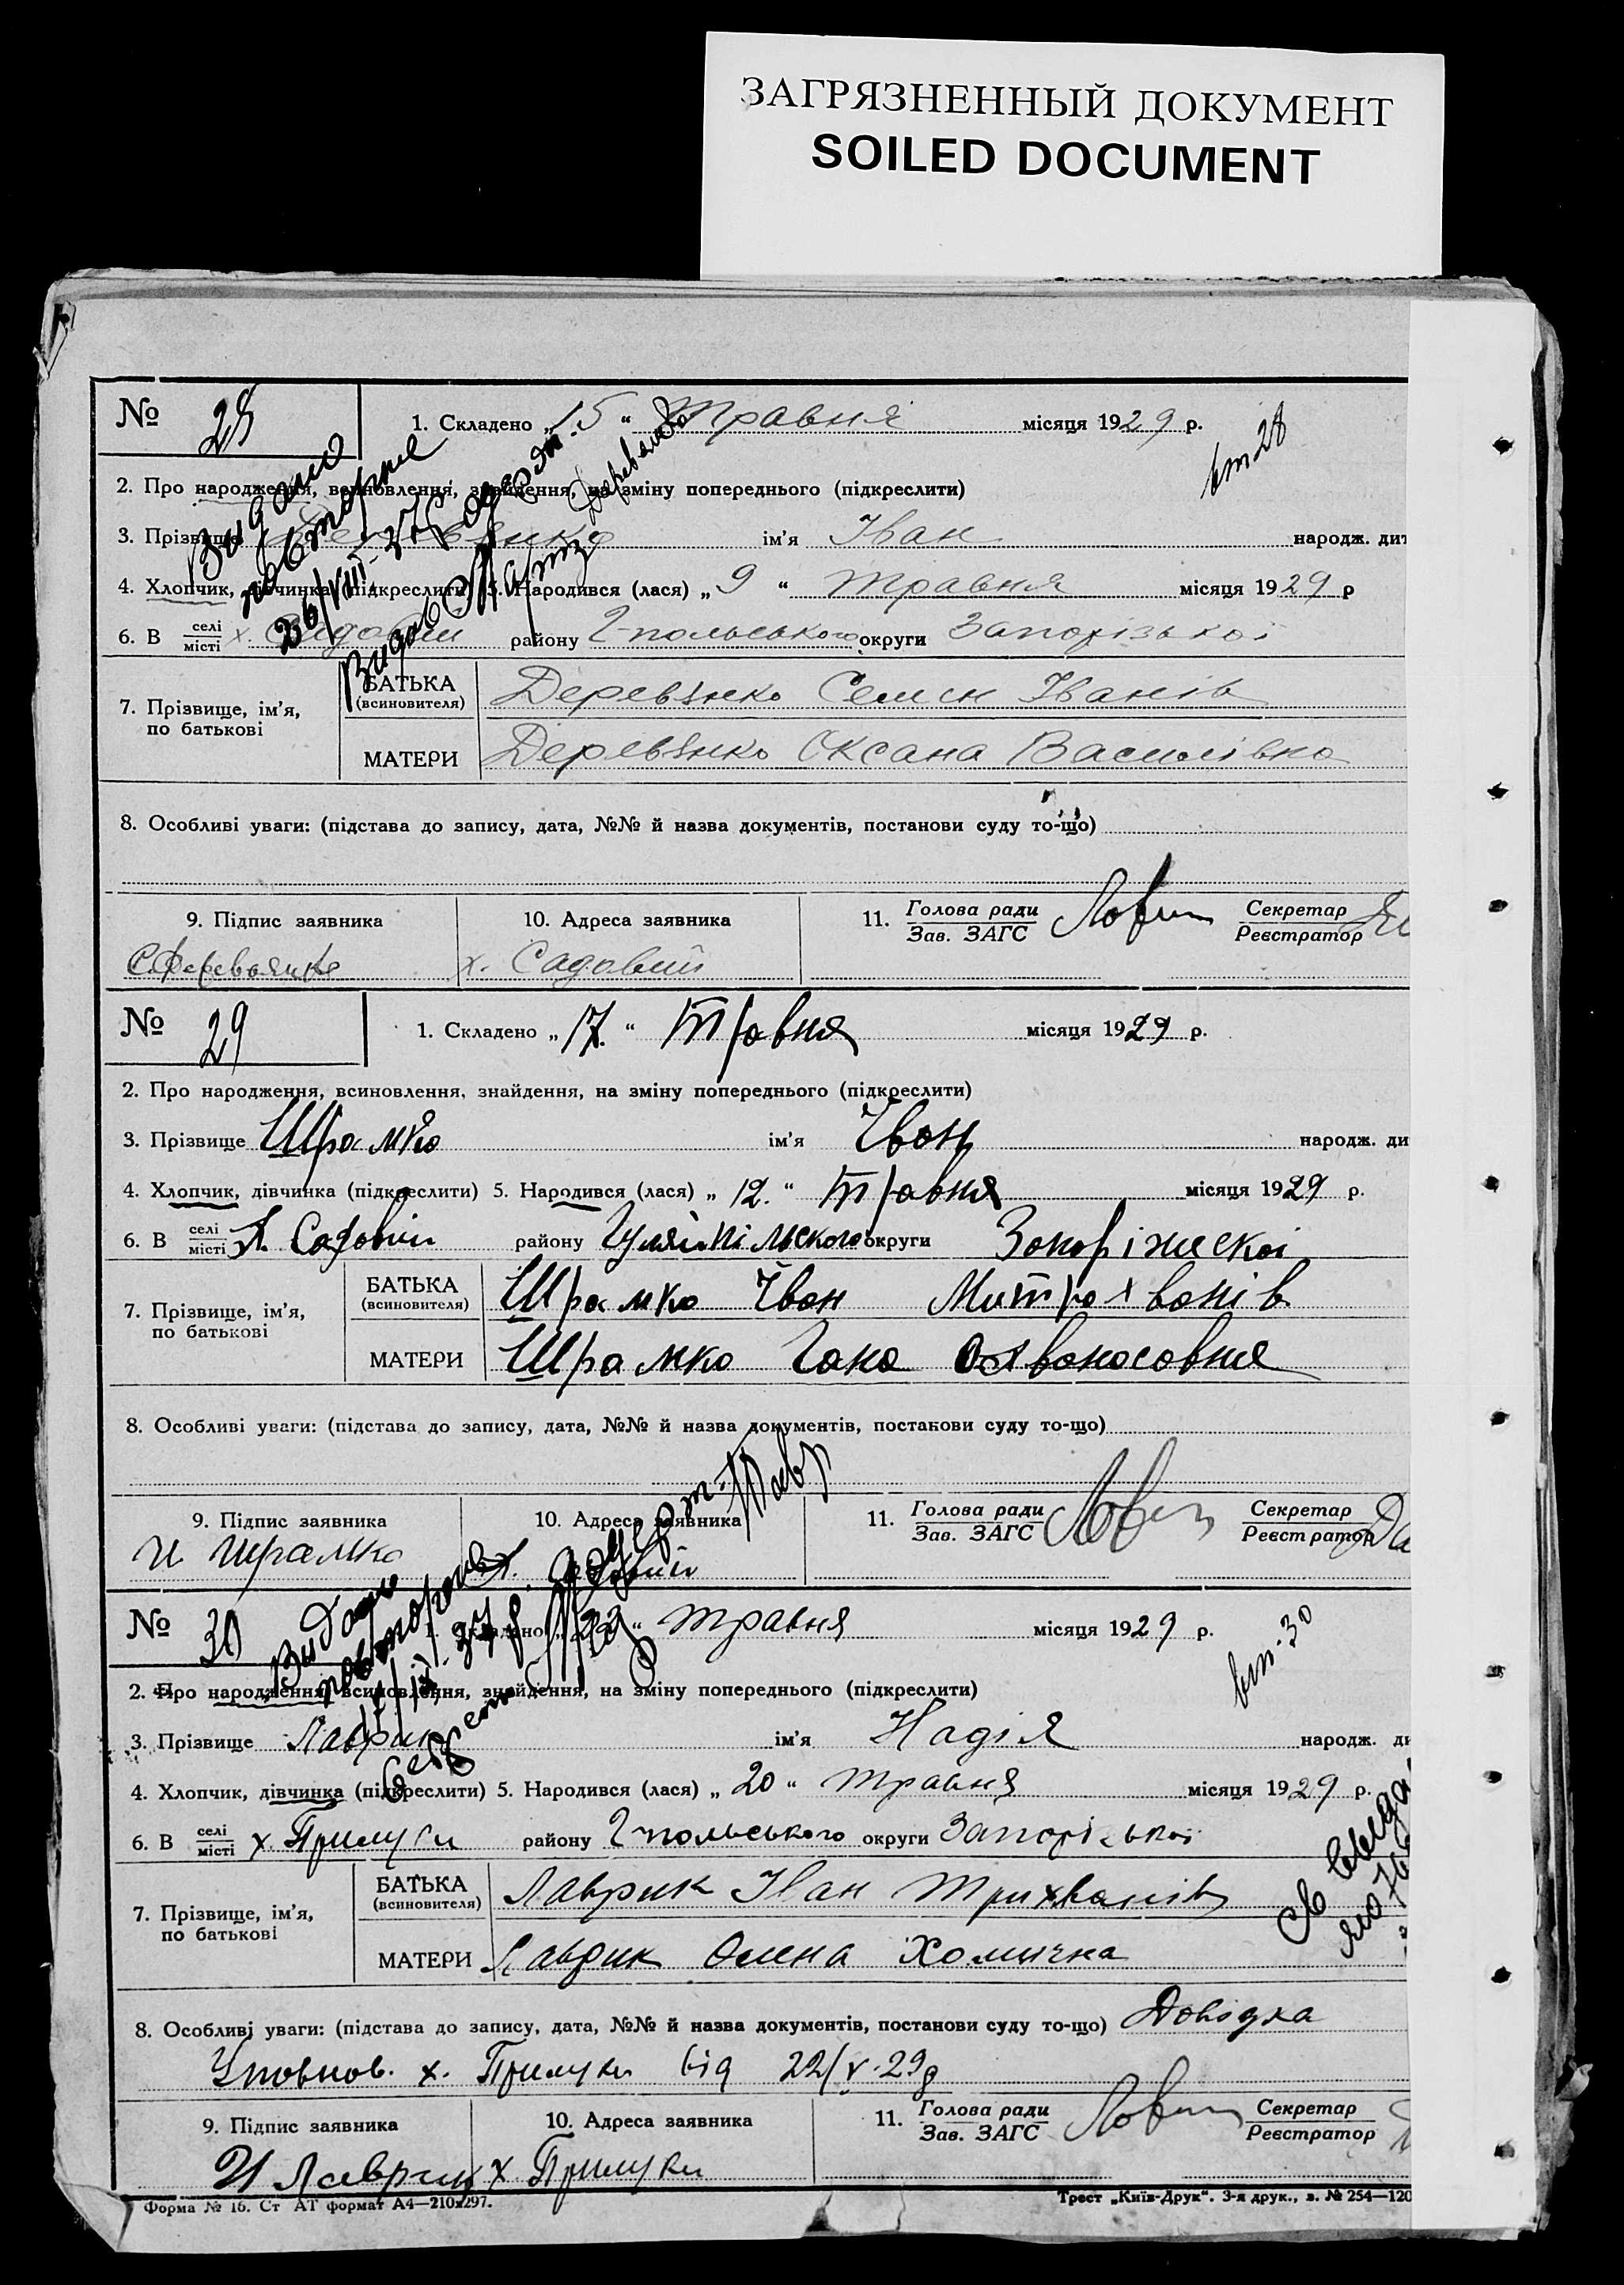 ЗАГРЯЗНЕННЫЙ ДОКУМЕНТ
SOILED DOCUMENT
№ 28
1. Складено „15“ травня місяця 1929 р.
вип 28
2. Про народження, всиновлення, знайдення, на зміну попереднього (підкреслити)
Видано
повторне
26/VIII-
3. Прізвище Деревянко ім'я Іван народж. дит
4. Хлопчик, дівчинка (підкреслити) 5. Народився (лася) „9“ травня місяця 1929 р
6. В селі місті х. Садовий району Г-польського округи Запорізької
7. Прізвище, ім'я, по батькові
БАТЬКА (всиновителя) Деревянко Семен Іванів
МАТЕРИ Деревянко Оксана Василівна
8. Особливі уваги: (підстава до запису, дата, №№ й назва документів, постанови суду то-що)
9. Підпис заявника
10. Адреса заявника
11. Голова ради Зав. ЗАГС
Секретар Реєстратор
С. Деревьянко
х. Садовий
№ 29
1. Складено „17.“ травня місяця 1929 р.
2. Про народження, всиновлення, знайдення, на зміну попереднього (підкреслити)
3. Прізвище Шрамко ім'я Іван народж. ди
4. Хлопчик, дівчинка (підкреслити) 5. Народився (лася) „12.“ травня місяця 1929 р.
6. В селі місті х. Садовий району Гуляйпільского округи Запоріжскої
7. Прізвище, ім'я, по батькові
БАТЬКА (всиновителя) Шрамко Іван Митрохванів
МАТЕРИ Шрамко Гана
8. Особливі уваги: (підстава до запису, дата, №№ й назва документів, постанови суду то-що)
9. Підпис заявника
10. Адреса заявника
11. Голова ради Зав. ЗАГС
Секретар Реєстратор
И Шрамко
х. Садовий
№ 30
1. Складено „23“ травня місяця 1929 р.
вип. 30
Видано
повторне
2. Про народження, всиновлення, знайдення, на зміну попереднього (підкреслити)
3. Прізвище Лаврик ім'я Надія народж. ди
4. Хлопчик, дівчинка (підкреслити) 5. Народився (лася) „20“ травня місяця 1929 р.
6. В селі місті х. Прилуки району Г-польського округи Запорізької
7. Прізвище, ім'я, по батькові
БАТЬКА (всиновителя) Лаврик Іван Трихванів
МАТЕРИ Лаврик Олена Хомична
8. Особливі уваги: (підстава до запису, дата, №№ й назва документів, постанови суду то-що) Довідка
Уповнов. х. Прилуки від 22/V-29р
9. Підпис заявника
10. Адреса заявника
11. Голова ради Зав. ЗАГС
Секретар Реєстратор
И Лаврик
х Прилуки
Форма № 16. Ст АТ формат А4—210х297.
Трест „Київ-Друк“. 3-я друк., з. № 254—120